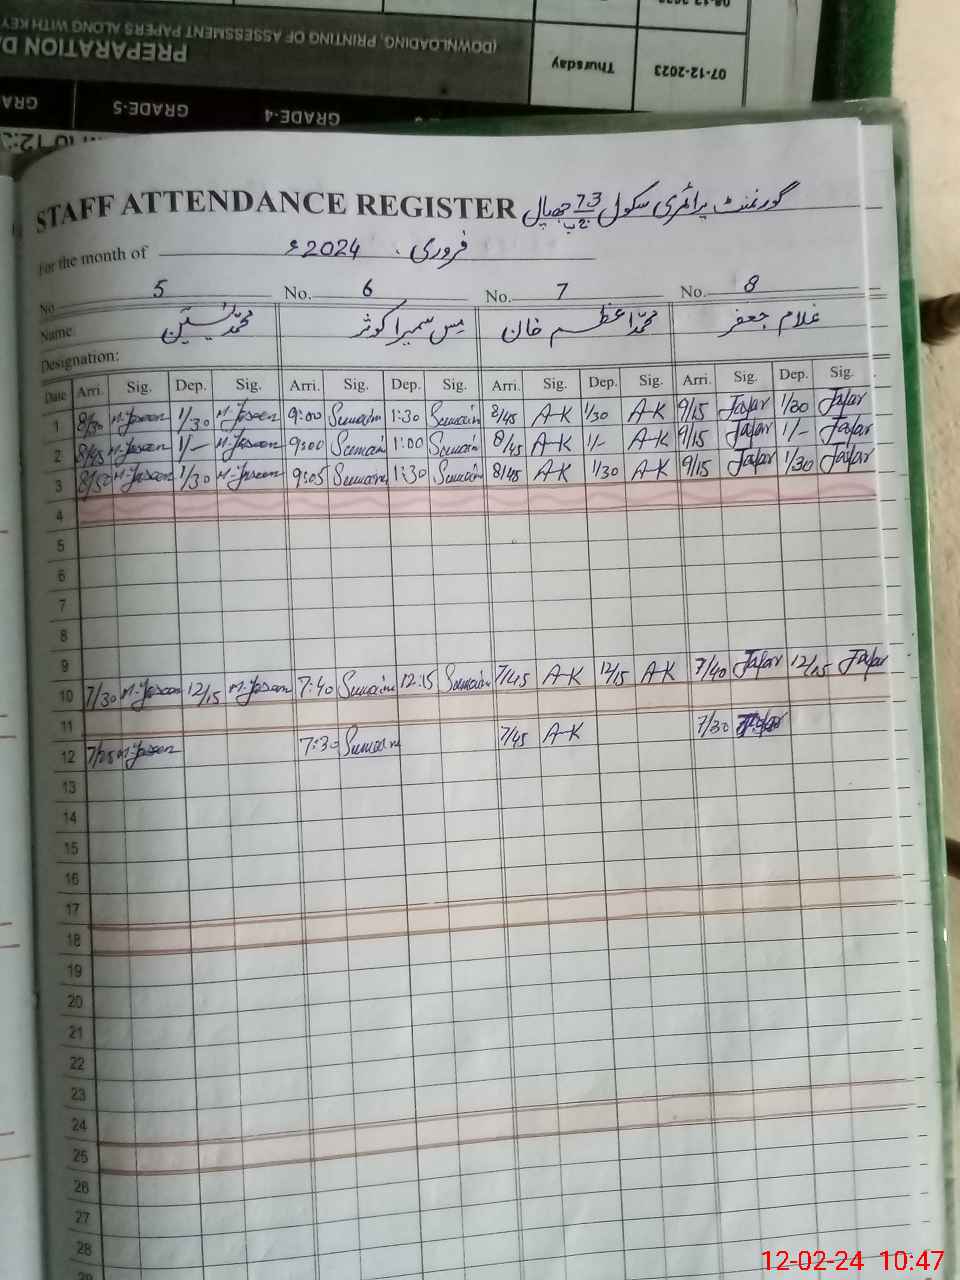 08-12-2023
(DOWNLOADING, PRINTING OF ASSESSMENT PAPERS ALONG WITH KEY
PREPARATION D
Thursday
07-12-2023
GRA
GRADE-5
GRADE-4
STAFF ATTENDANCE REGISTER گورنمنٹ پرائمری سکول 73
For the month of فروری 2024ء
No. 5 No. 6 No. 7 No. 8
Name: محمد یٰسین مس سمیرا کوثر محمد اعظم خان غلام جعفر
Designation:
Date Arri. Sig. Dep. Sig. Arri. Sig. Dep. Sig. Arri. Sig. Dep. Sig. Arri. Sig. Dep. Sig.
1 8/30 M.Jaseen 1/30 M.Jaseen 9:00 Sumaira 1:30 Sumaira 8/45 A-K 1/30 A-K 9/15 Jafar 1/30 Jafar
2 8/45 M.Jaseen 1/- M.Jaseen 9:00 Sumaira 1:00 Sumaira 8/45 A-K 1/- A-K 9/15 Jafar 1/- Jafar
3 8/50 M.Jaseen 1/30 M.Jaseen 9:05 Sumaira 1:30 Sumaira 8/45 A-K 1/30 A-K 9/15 Jafar 1/30 Jafar
4
5
6
7
8
9
10 7/30 M.Jaseen 12/15 M.Jaseen 7:40 Sumaira 12:15 Sumaira 7/45 A-K 12/15 A-K 7/40 Jafar 12/15 Jafar
11
12 7/25 M.Jaseen 7:30 Sumaira 7/45 A-K 7/30 Jafar
13
14
15
16
17
18
19
20
21
22
23
24
25
26
27
28
12-02-24 10:47